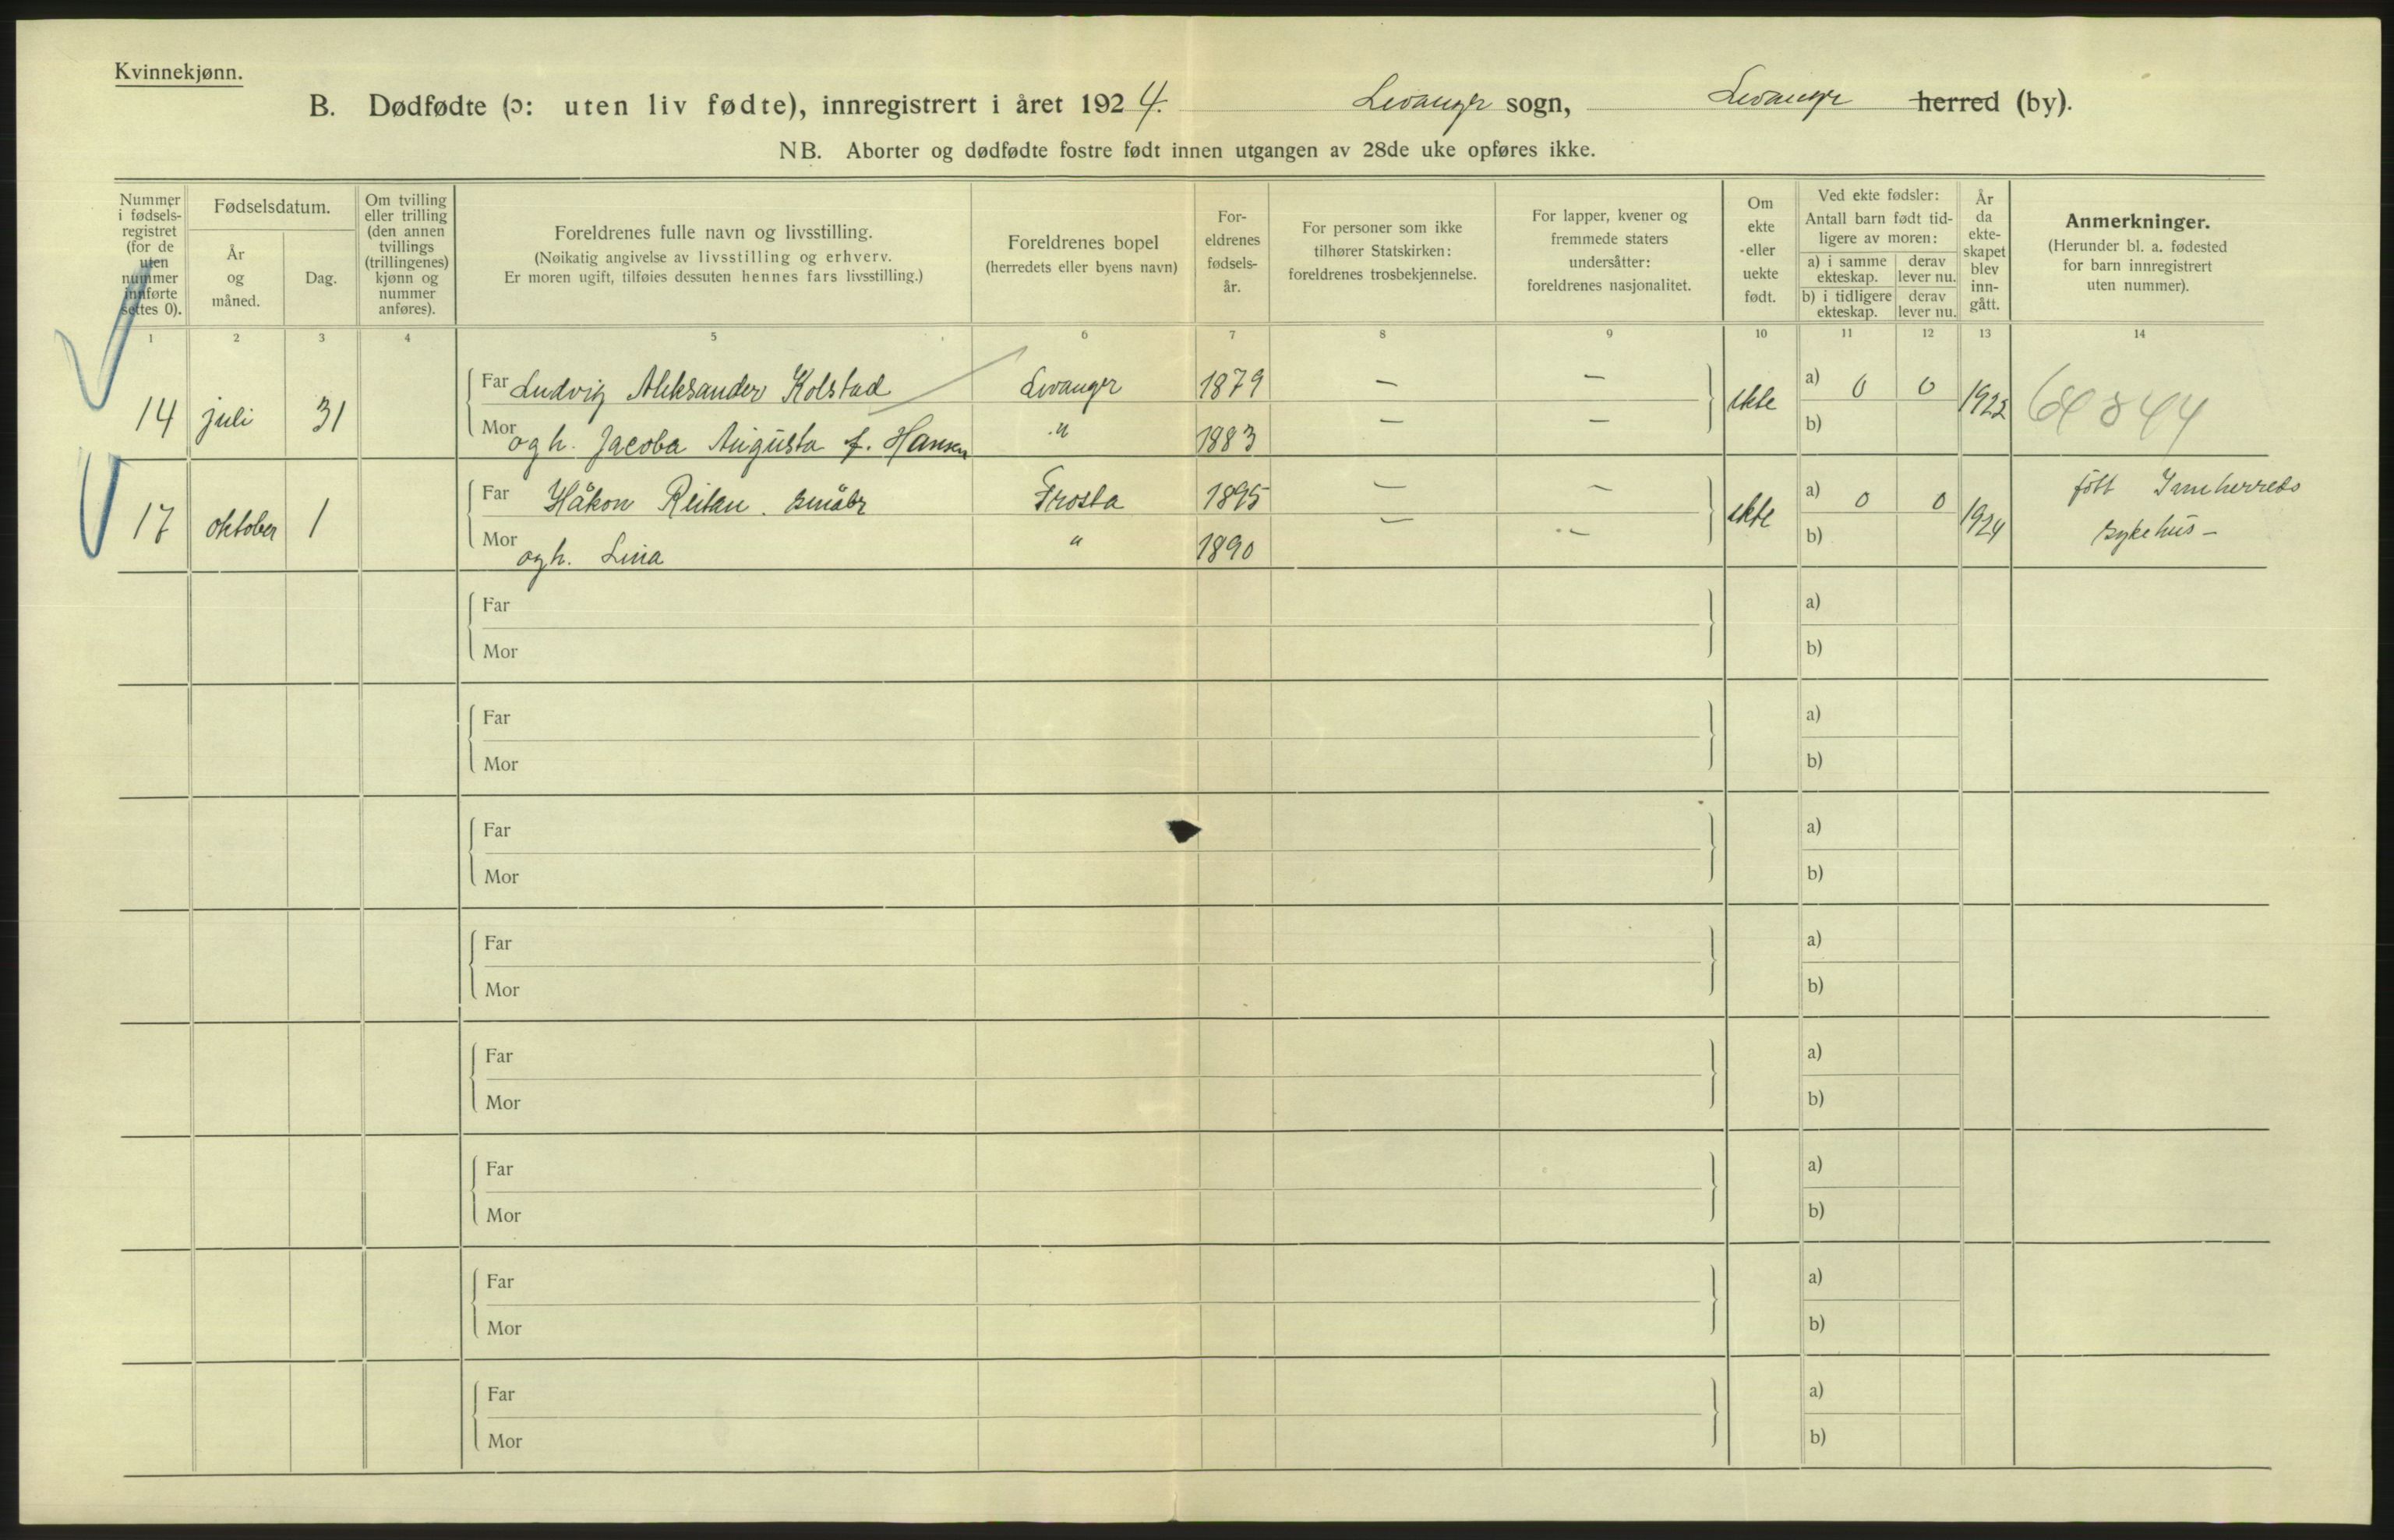 Kvinnekjønn.
B. Dødfødte (ɔ: uten liv fødte), innregistrert i året 1924. Levanger sogn, Levanger herred (by).
NB. Aborter og dødfødte fostre født innen utgangen av 28de uke opføres ikke.
Nummer
i fødsels-
registret
(for de
uten
nummer
innførte
settes 0).
Fødselsdatum.
År
og
måned.
Dag.
Om tvilling
eller trilling
(den annen
tvillings
(trillingenes)
kjønn og
nummer
anføres).
Foreldrenes fulle navn og livsstilling.
(Nøikatig angivelse av livsstilling og erhverv.
Er moren ugift, tilføies dessuten hennes fars livsstilling.)
Foreldrenes bopel
(herredets eller byens navn)
For-
eldrenes
fødsels-
år.
For personer som ikke
tilhører Statskirken:
foreldrenes trosbekjennelse.
For lapper, kvener og
fremmede staters
undersåtter:
foreldrenes nasjonalitet.
Om
ekte
eller
uekte
født.
Ved ekte fødsler:
Antall barn født tid-
ligere av moren:
a) i samme
ekteskap.
derav
lever nu.
b) i tidligere
ekteskap.
derav
lever nu.
År
da
ekte-
skapet
blev
inn-
gått.
Anmerkninger.
(Herunder bl. a. fødested
for barn innregistrert
uten nummer).
1 2 3 4 5 6 7 8 9 10 11 12 13 14
Far Ludvig Aleksander Kolstad Levanger 1879 — — a) 0 0
14 juli 31 ekte 1922
Mor og h. Jacoba Augusta f. Hansen " 1883 — — b)
Far Håkon Reitan. småbr Frosta 1895 — — a) 0 0 født Innherreds
17 oktober 1 ekte 1924
Mor og h. Lina " 1890 — — b) sykehus —
Far a)
Mor b)
Far a)
Mor b)
Far a)
Mor b)
Far a)
Mor b)
Far a)
Mor b)
Far a)
Mor b)
Far a)
Mor b)
Far a)
Mor b)